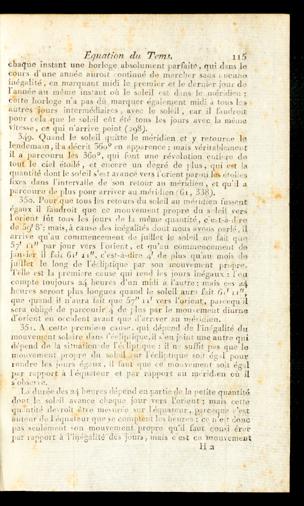 Equation du Tems. 115
chaque instant une horloge absolument parfaite, qui dans le
cours d'une année auroit continué de marcher sans aucune
inégalité, en marquant midi le premier et le dernier jour de
l'année au même instant où le soleil est dans le méridien ;
cette horloge n'a pas dû marquer également midi à tous les
autres jours intermédiaires, avec le soleil, car il faudroit
pour cela que le soleil eût été tous les jours avec la même
vitesse, ce qui n'arrive point (298).
349. Quand le soleil quitte le méridien et y retourne le
lendemain, il a décrit 360° en apparence ; mais véritablement
il a parcouru les 360°, qui font une révolution entière de
tout le ciel étoilé, et encore un degré de plus, qui est la
quantité dont le soleil s'est avancé vers l'orient parmi les étoiles
fixes dans l'intervalle de son retour au méridien, et qu'il a
parcourir de plus pour arriver au méridien (61, 338).
350. Pour que tous les retours du soleil au méridien fussent
égaux il faudroit que ce mouvement propre du soleil vers
l'orient fût tous les jours de la même quantité, c'est-à-dire
de 59' 8" ; mais, à cause des inégalités dont nous avons parlé, il
arrive qu'au commencement de juillet le soleil ne fait que
57' 11" par jour vers l'orient, et qu'au commencement de
janvier il fait 61' 11", c'est-à-dire 4' de plus qu'au mois de
juillet le long de l'écliptique par son mouvement propre.
Telle est la premiere cause qui rend les jours inégaux : l'on
compte toujours 24 heures d'un midi à l'autre ; mais ces 24
heures seront plus longues quand le soleil aura fait 61' 11"
que quand il n'aura fait que 57' 11" vers l'orient, parcequ'il
sera obligé de parcourir 4' de plus par le mouvement diurne
d'orient en occident avant que d'arriver au méridien.
351. A cette premiere cause, qui dépend de l'inégalité du
mouvement solaire dans l'écliptique, il s'en joint une autre qui
dépend de la situation de l'écliptique : il ne suffit pas que le
mouvement propre du soleil sur l'écliptique soit égal pour
rendre les jours égaux, il faut que ce mouvement soit égal
par rapport à l'équateur et par rapport au méridien où il
s'observe.
La durée des 24 heures dépend en partie de la petite quantité
dont le soleil avance chaque jour vers l'orient ; mais cette
quantité devroit être mesurée sur l'équateur, parceque c'est
autour de l'équateur que se comptent les heures : ce n'est donc
pas seulement son mouvement propre qu'il faut considérer
par rapport à l'inégalité des jours, mais c'est ce mouvement
H 2